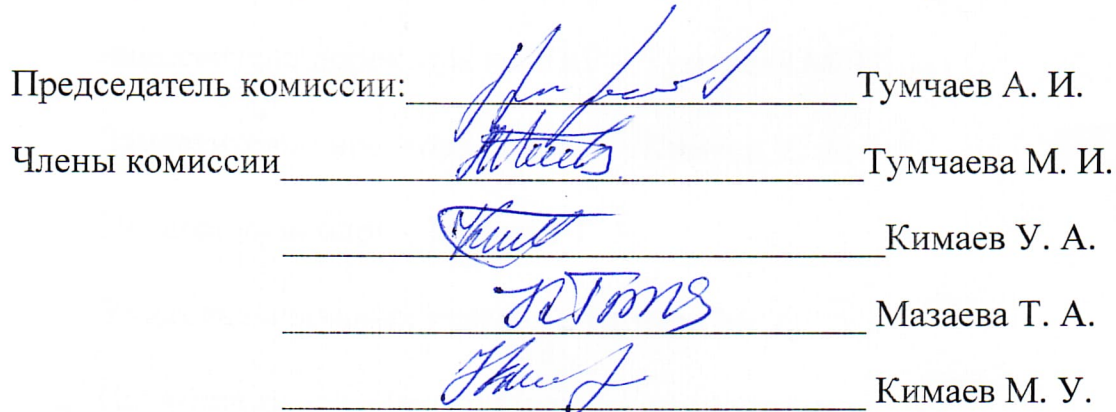 Председатель комиссии: Тумчаев А. И.
Члены комиссии Тумчаева М. И.
Кимаев У. А.
Мазаева Т. А.
Кимаев М. У.